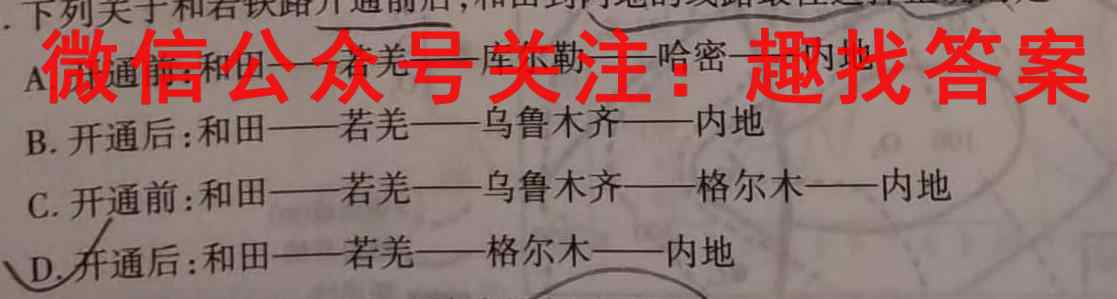 .下列关于和若铁路开通前后,和田到内地的线路最佳选择
A.开通前:和田——若羌——库尔勒——哈密——内地
微信公众号关注：趣找答案
B.开通后:和田——若羌——乌鲁木齐——内地
C.开通前:和田——若羌——乌鲁木齐——格尔木——内地
D.开通后:和田——若羌——格尔木——内地